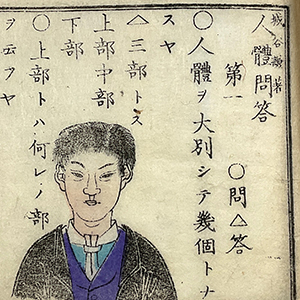 城谷著
人體問答
第一　○問△答
○人體ヲ大別シテ幾個トナ
スヤ
△三部トス
上部中部
下部
○上部トハ何レノ部
ヲ云フヤ